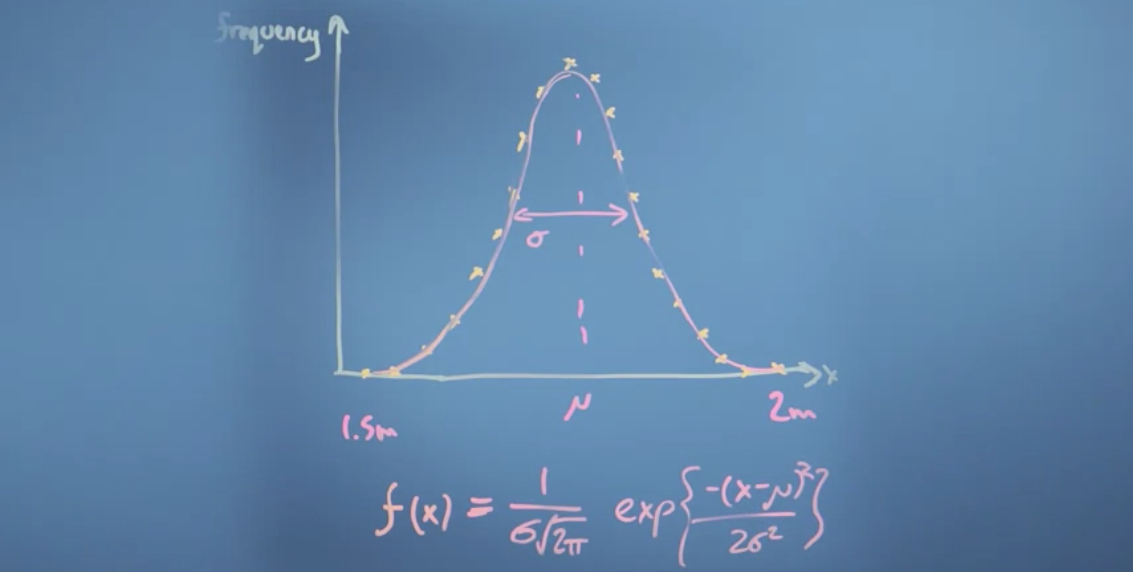 frequency
σ
x
1.5m
μ
2m
f(x) = 1/σ√2π exp{-(x-μ)²/2σ²}